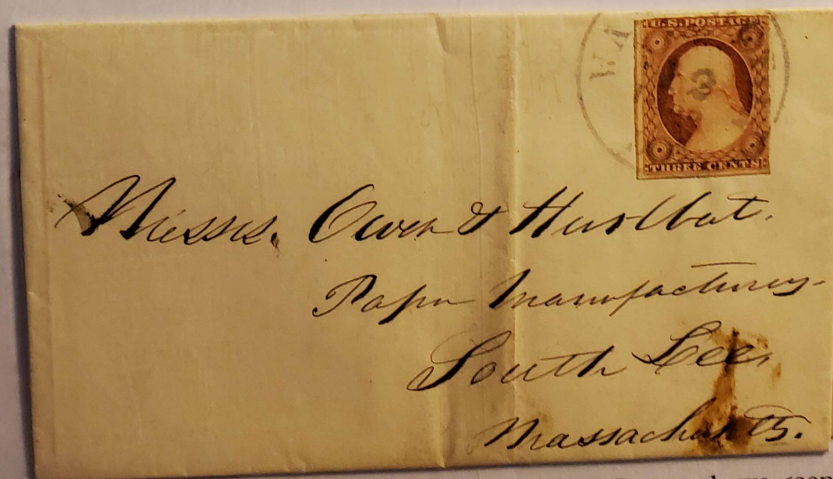 U.S. POSTAGE
WA
3
THREE CENTS
Messrs. Owen & Hurlbut.
Paper Manufacturers.
South Lee,
Massachusetts.